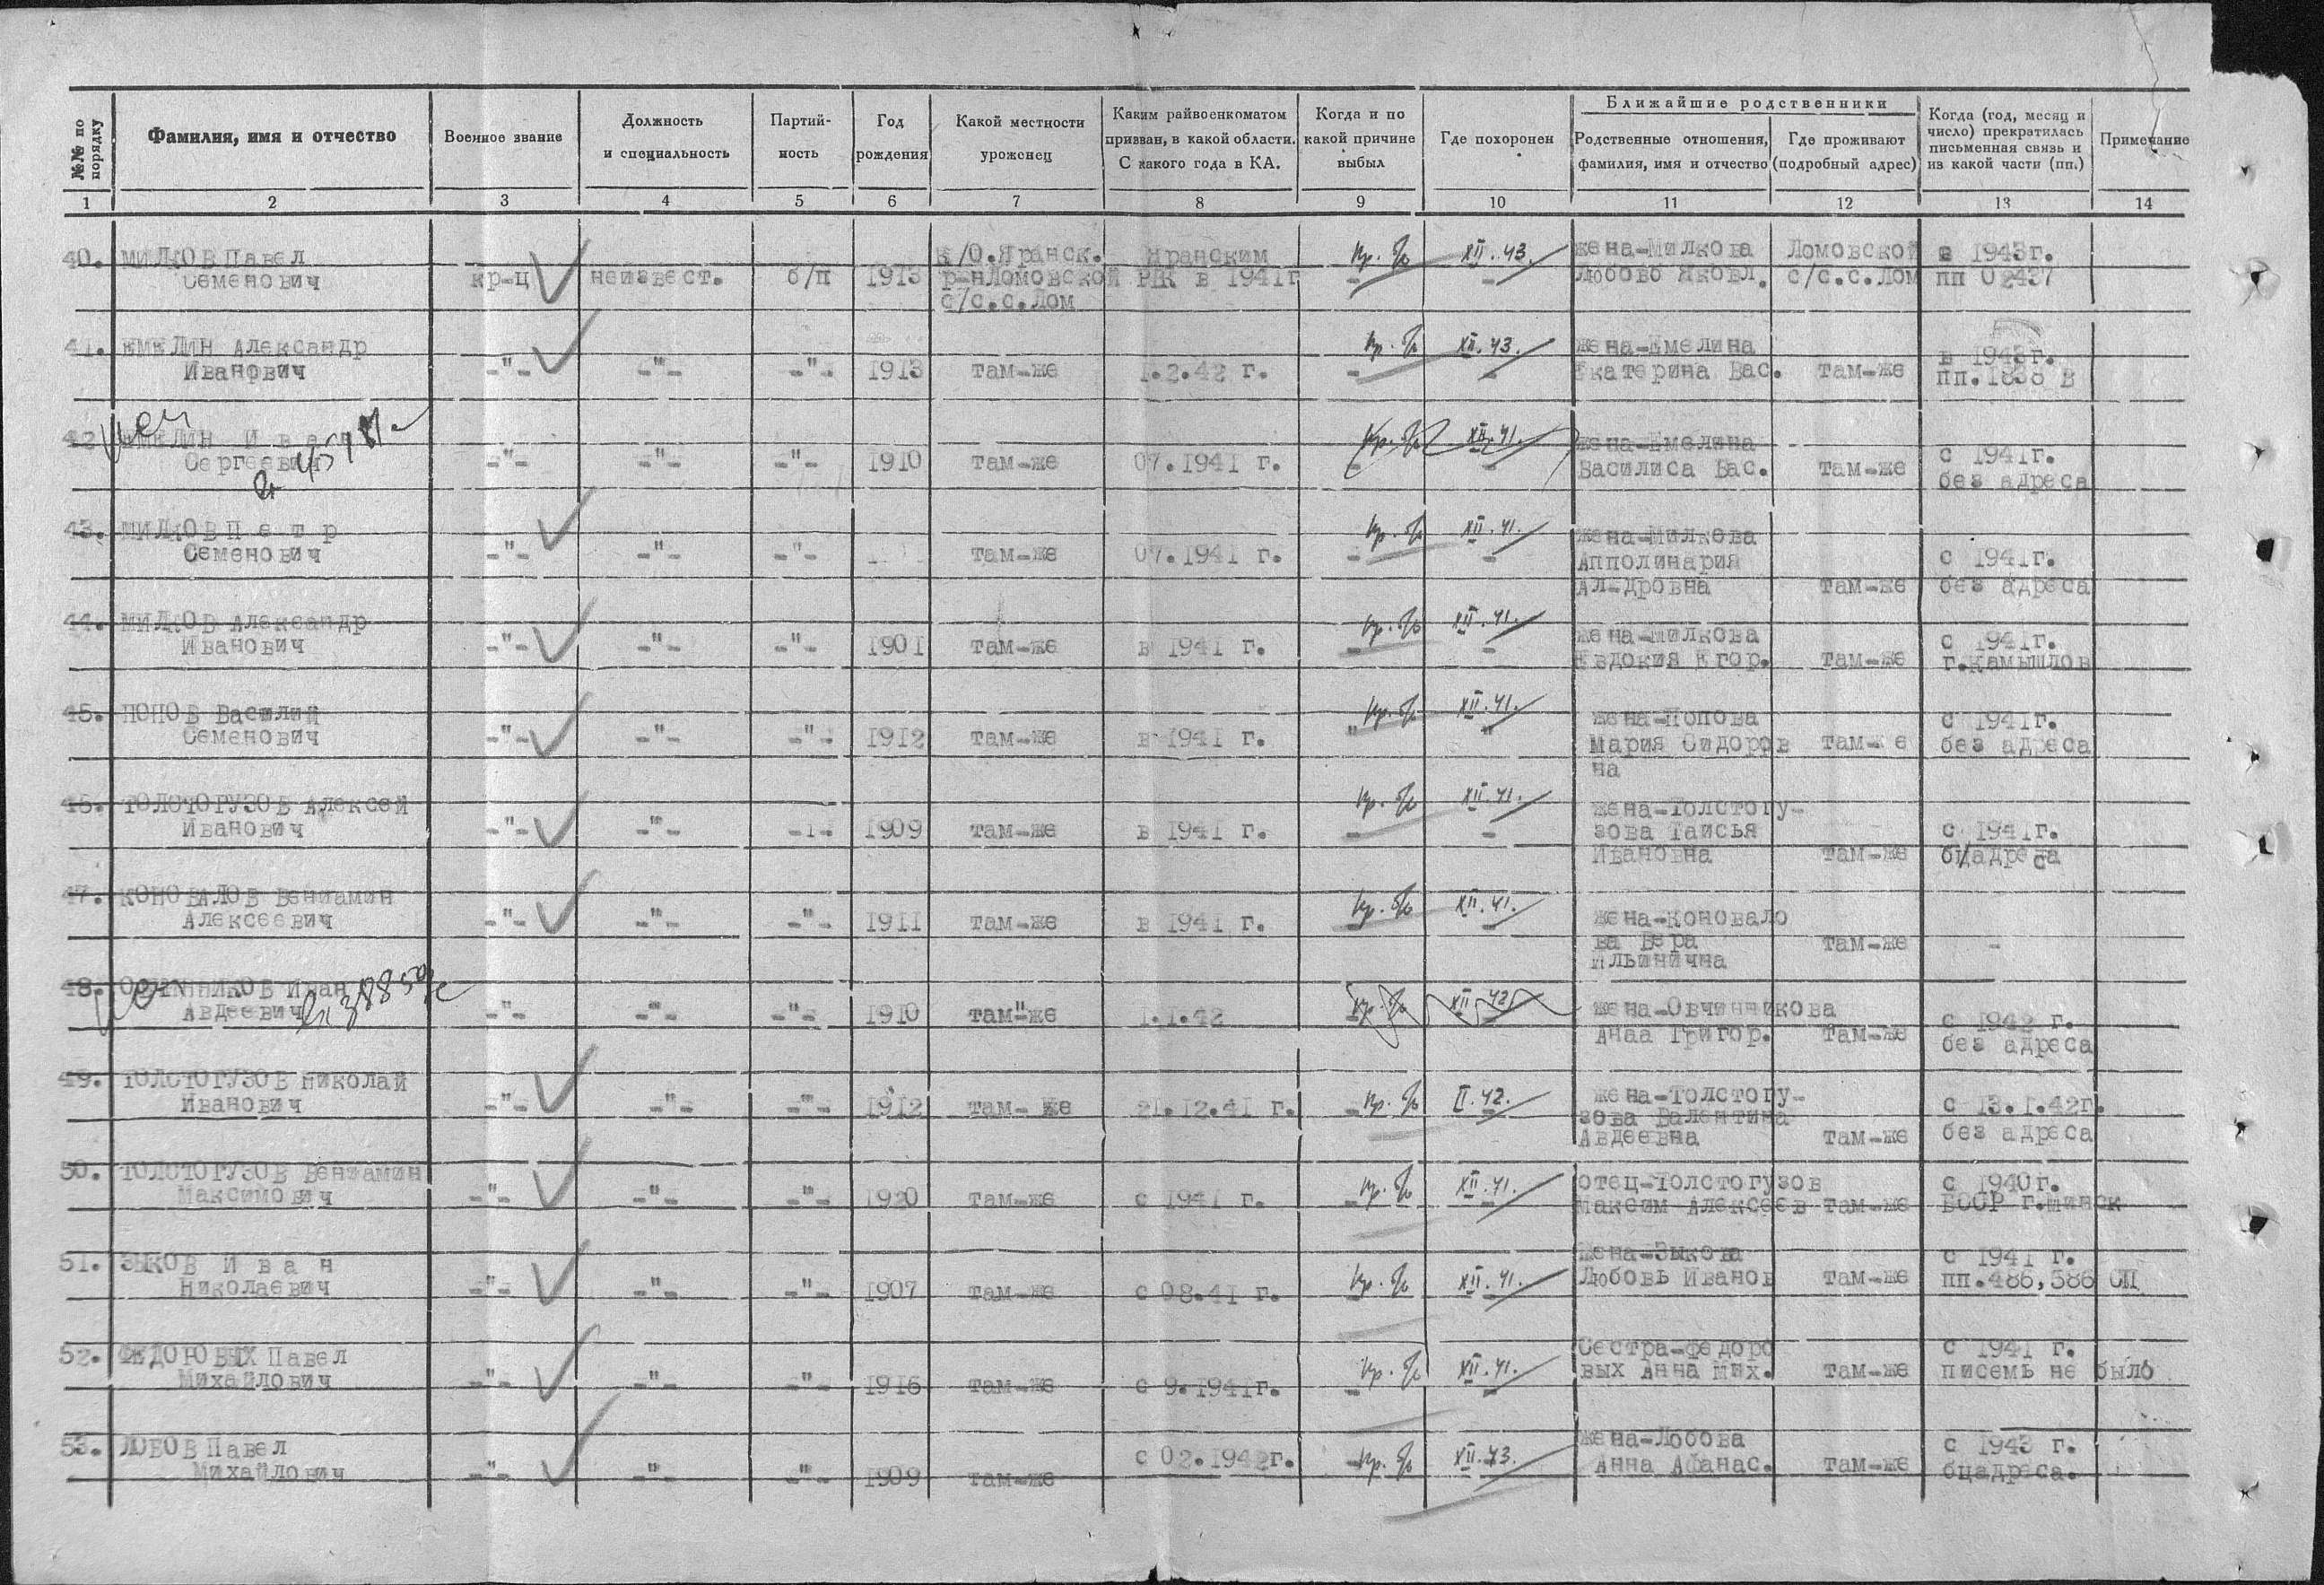 №№ по порядку
Фамилия, имя и отчество
Военное звание
Должность
и специальность
Партий-
ность
Год
рождения
Какой местности
уроженец
Каким райвоенкоматом
призван, в какой области.
С какого года в КА.
Когда и по
какой причине
выбыл
Где похоронен
Ближайшие родственники
Родственные отношения,
фамилия, имя и отчество
Где проживают
(подробный адрес)
Когда (год, месяц и
число) прекратилась
письменная связь и
из какой части (пп.)
Примечание
1 2 3 4 5 6 7 8 9 10 11 12 13 14
40. МИЛКОВ Павел К/О.Яранск. Яранским пр. б/в XII.43. жена-Милкова Ломовской в 1943г.
Семенович кр-ц неизвест. б/п 1913 р-нЛомовской РВК в 1941г - - Любовь Яковл. с/с.с.Лом пп 02437
с/с.с.Лом
41. ЕМЕЛИН Александр пр. б/в XII.43. жена-Емелина в 1943г.
Иванович -"- -"- -"- 1913 там-же 1.2.42 г. - - Екатерина Вас. там-же пп.1838 В
42 ЕМЕЛИН Иван пр. б/в XII.41. жена-Емелина с 1941г.
Сергеевич -"- -"- -"- 1910 там-же 07.1941 г. - - Василиса Вас. там-же без адреса
43. МИЛКОВ Петр пр. б/в XII.41. жена-Милкова
Семенович -"- -"- -"- там-же 07.1941 г. - - Апполинария с 1941г.
Ал-дровна там-же без адреса
44. МИЛКОВ Александр пр. б/в XII.41. жена-Милкова с 1941г.
Иванович -"- -"- -"- 1901 там-же в 1941 г. - - Евдокия Егор. там-же г.Камышлов
45. ПОПОВ Василий пр. б/в XII.41. жена-Попова с 1941г.
Семенович -"- -"- -"- 1912 там-же в 1941 г. " " Мария Сидоров там-же без адреса
на
46. ТОЛСТОГУЗОВ Алексей пр. б/в XII.41. жена-Толстогу-
Иванович -"- -"- -"- 1909 там-же в 1941 г. - - зова Таисья с 1941г.
Ивановна там-же б/адреса
47. КОНОВАЛОВ Вениамин пр. б/в XII.41. жена-Коновало
Алексеевич -"- -"- -"- 1911 там-же в 1941 г. - - ва Вера там-же -
Ильинична
48. ОВЧИННИКОВ Иван пр. б/в XII.42 жена-Овчинникова с 1942 г.
Авдеевич -"- -"- -"- 1910 там"же 1.1.42 Анаа Григор. там-же без адреса
49. ТОЛСТОГУЗОВ Николай пр. б/в II.42. жена-Толстогу- с 13.1.42г.
Иванович -"- -"- -"- 1912 там- же 21.12.41 г. - - зова Валентина
Авдеевна там-же без адреса
50. ТОЛСТОГУЗОВ Вениамин пр. б/в XII.41. отец-Толстогузов с 1940г.
Максимович -"- -"- -"- 1920 там-же с 1941 г. - - Максим Алексеев там-же БССР г.Минск
51. ЗЫКОВ Иван пр. б/в XII.41. жена-Зыкова с 1941 г.
Николаевич -"- -"- -"- 1907 там-же с 08.41 г. - - Любовь Иванов там-же пп.486,586 СП
52. ФЕДОРОВЫХ Павел пр. б/в XII.41. Сестра-федоро с 1941 г.
Михайлович -"- -"- -"- 1916 там-же с 9.1941г. - - вых Анна Мих. там-же писемь не было
53. ЛОБОВ Павел с 02.1942г. пр. б/в XII.43. жена-Лобова с 1943 г.
Михайлович -"- -"- -"- 1909 там-же - - Анна Афанас. там-же бцадреса.